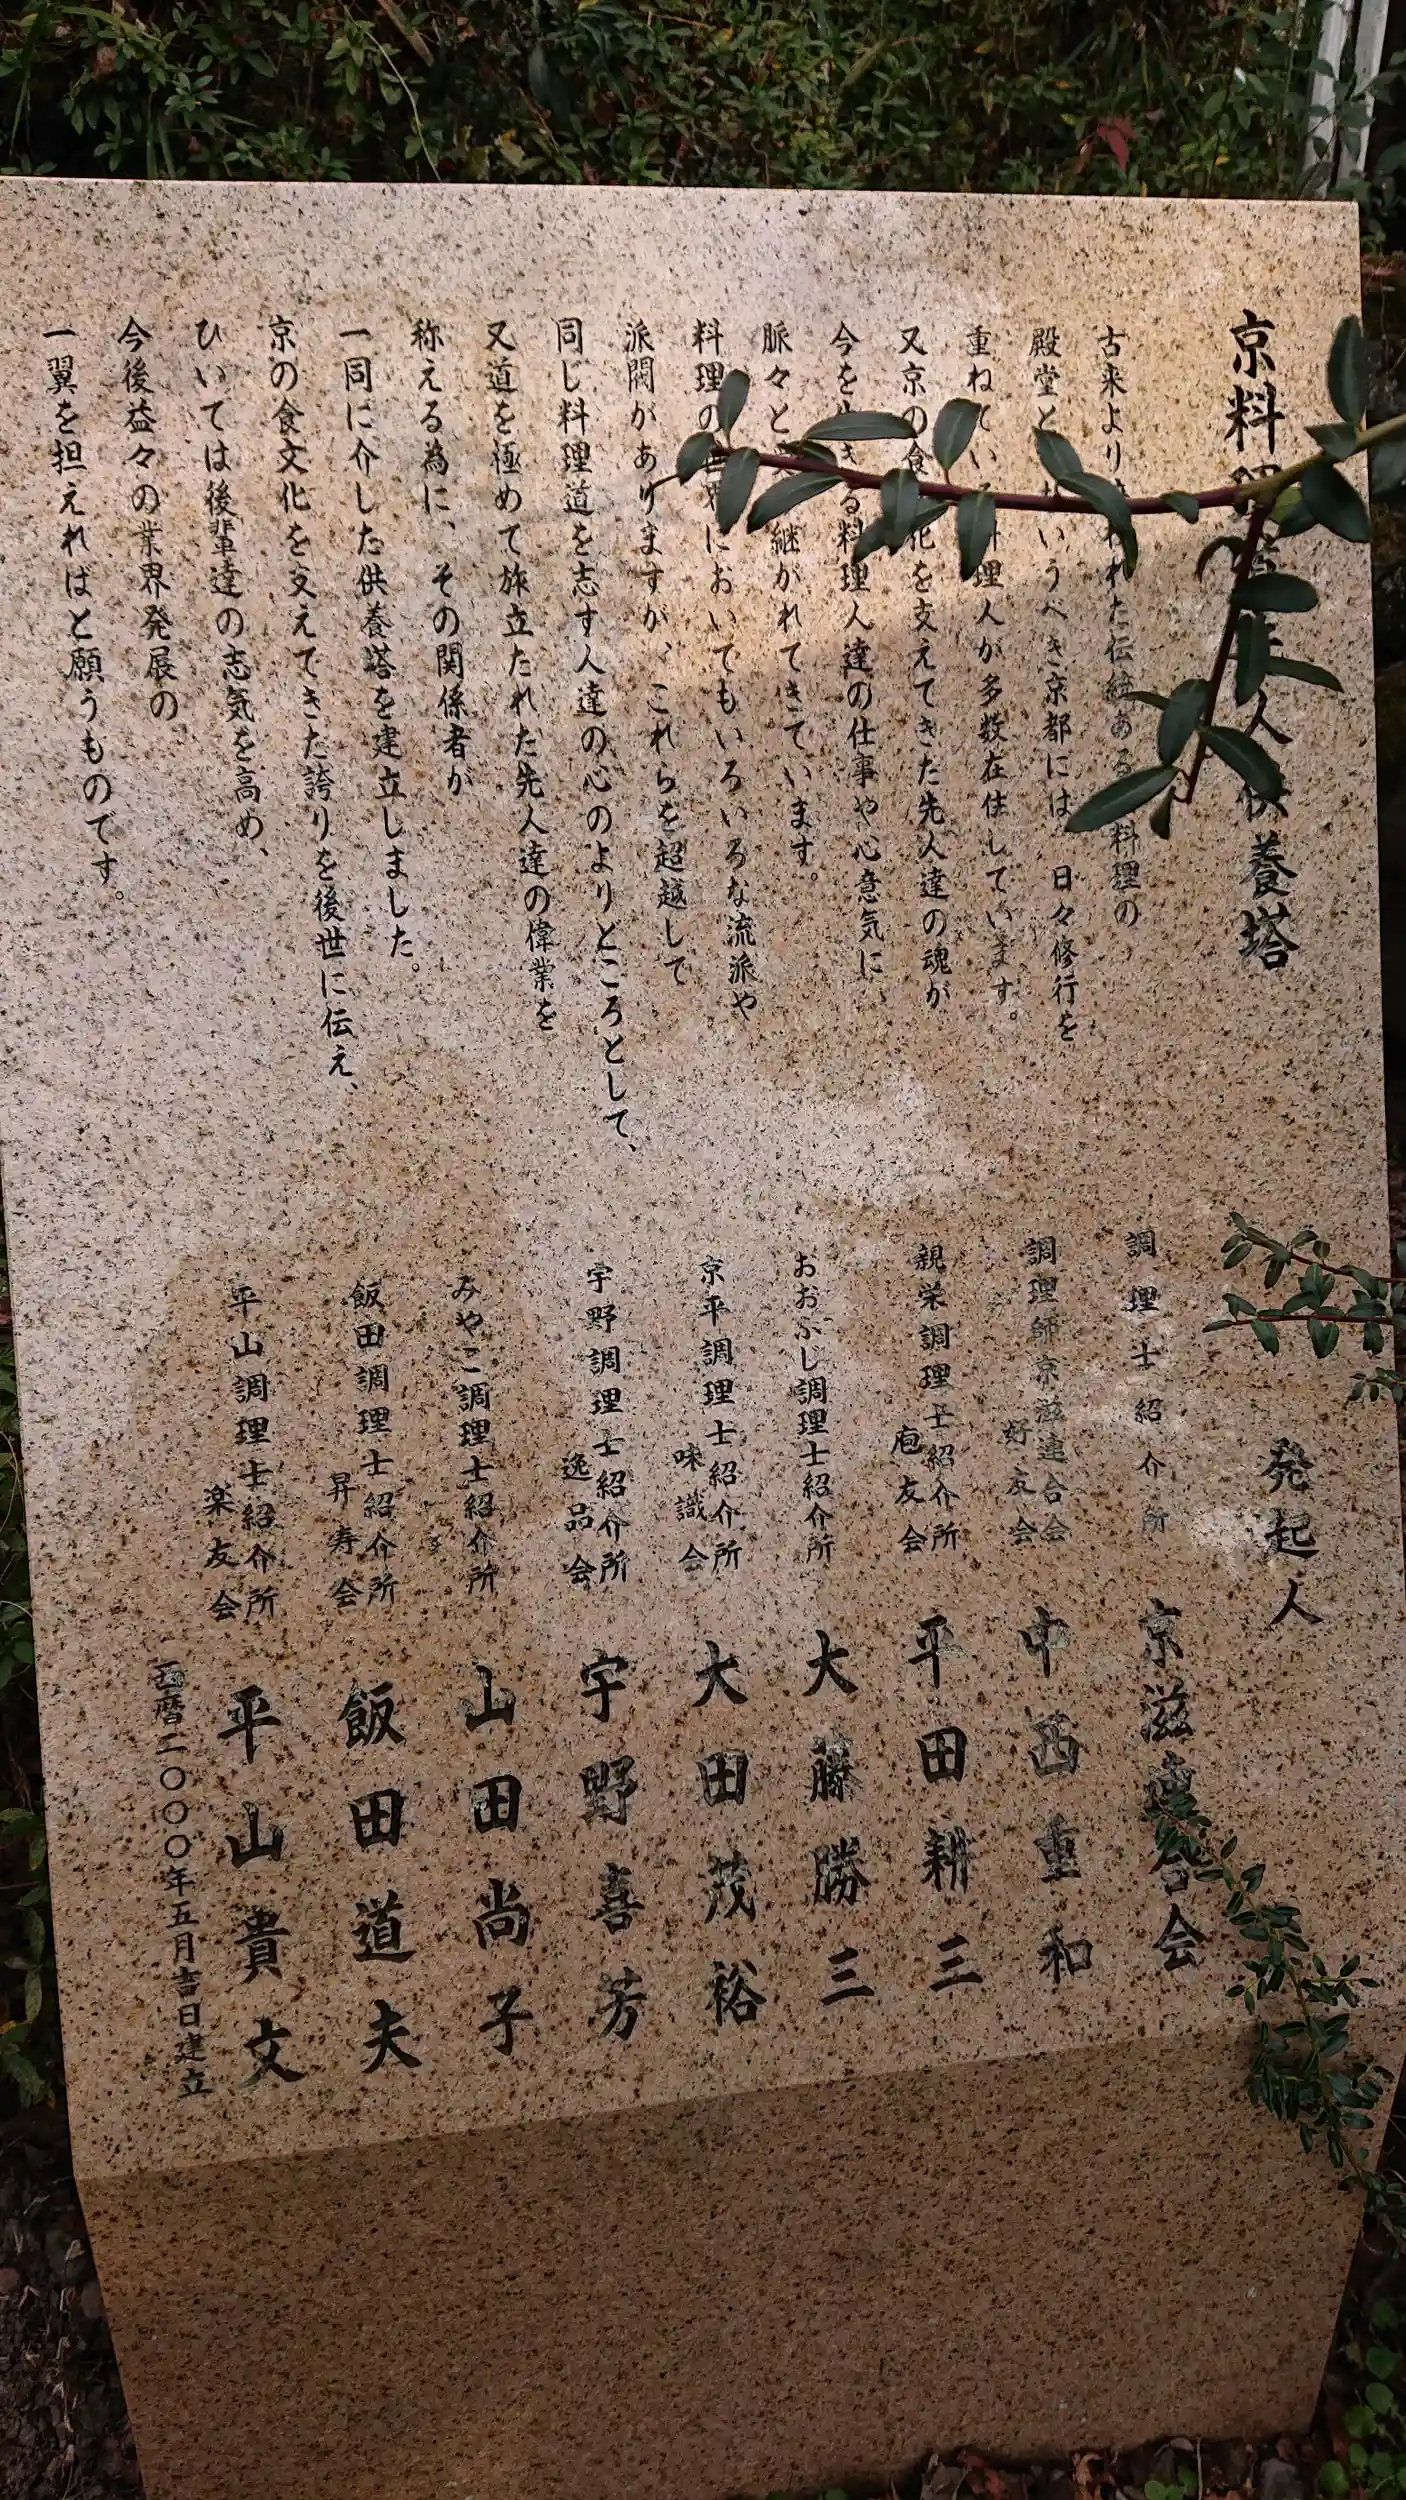 京料理 先人供養塔
古来より われた伝統ある 料理の
殿堂と いうべき京都には、日々修行を
重ねてい 料理人が多数在住しています。
又京の食 化を支えてきた先人達の魂が
今を生きる料理人達の仕事や心意気に
脈々と 継がれてきています。
料理の世界においてもいろいろな流派や
派閥がありますが、これらを超越して
同じ料理道を志す人達の心のよりどころとして、
又道を極めて旅立たれた先人達の偉業を
称える為に、その関係者が
一同に介した供養塔を建立しました。
京の食文化を支えてきた誇りを後世に伝え、
ひいては後輩達の志気を高め、
今後益々の業界発展の
一翼を担えればと願うものです。
発起人
調理士紹介所 京滋連合会
調理師京滋連合会 好友会 中西重和
親栄調理士紹介所 庖友会 平田耕三
おおふじ調理士紹介所 大藤勝三
京平調理士紹介所 味識会 大田茂裕
宇野調理士紹介所 逸品会 宇野喜芳
みやこ調理士紹介所 山田尚子
飯田調理士紹介所 昇寿会 飯田道夫
平山調理士紹介所 楽友会 平山貴文
西暦二〇〇〇年五月吉日建立